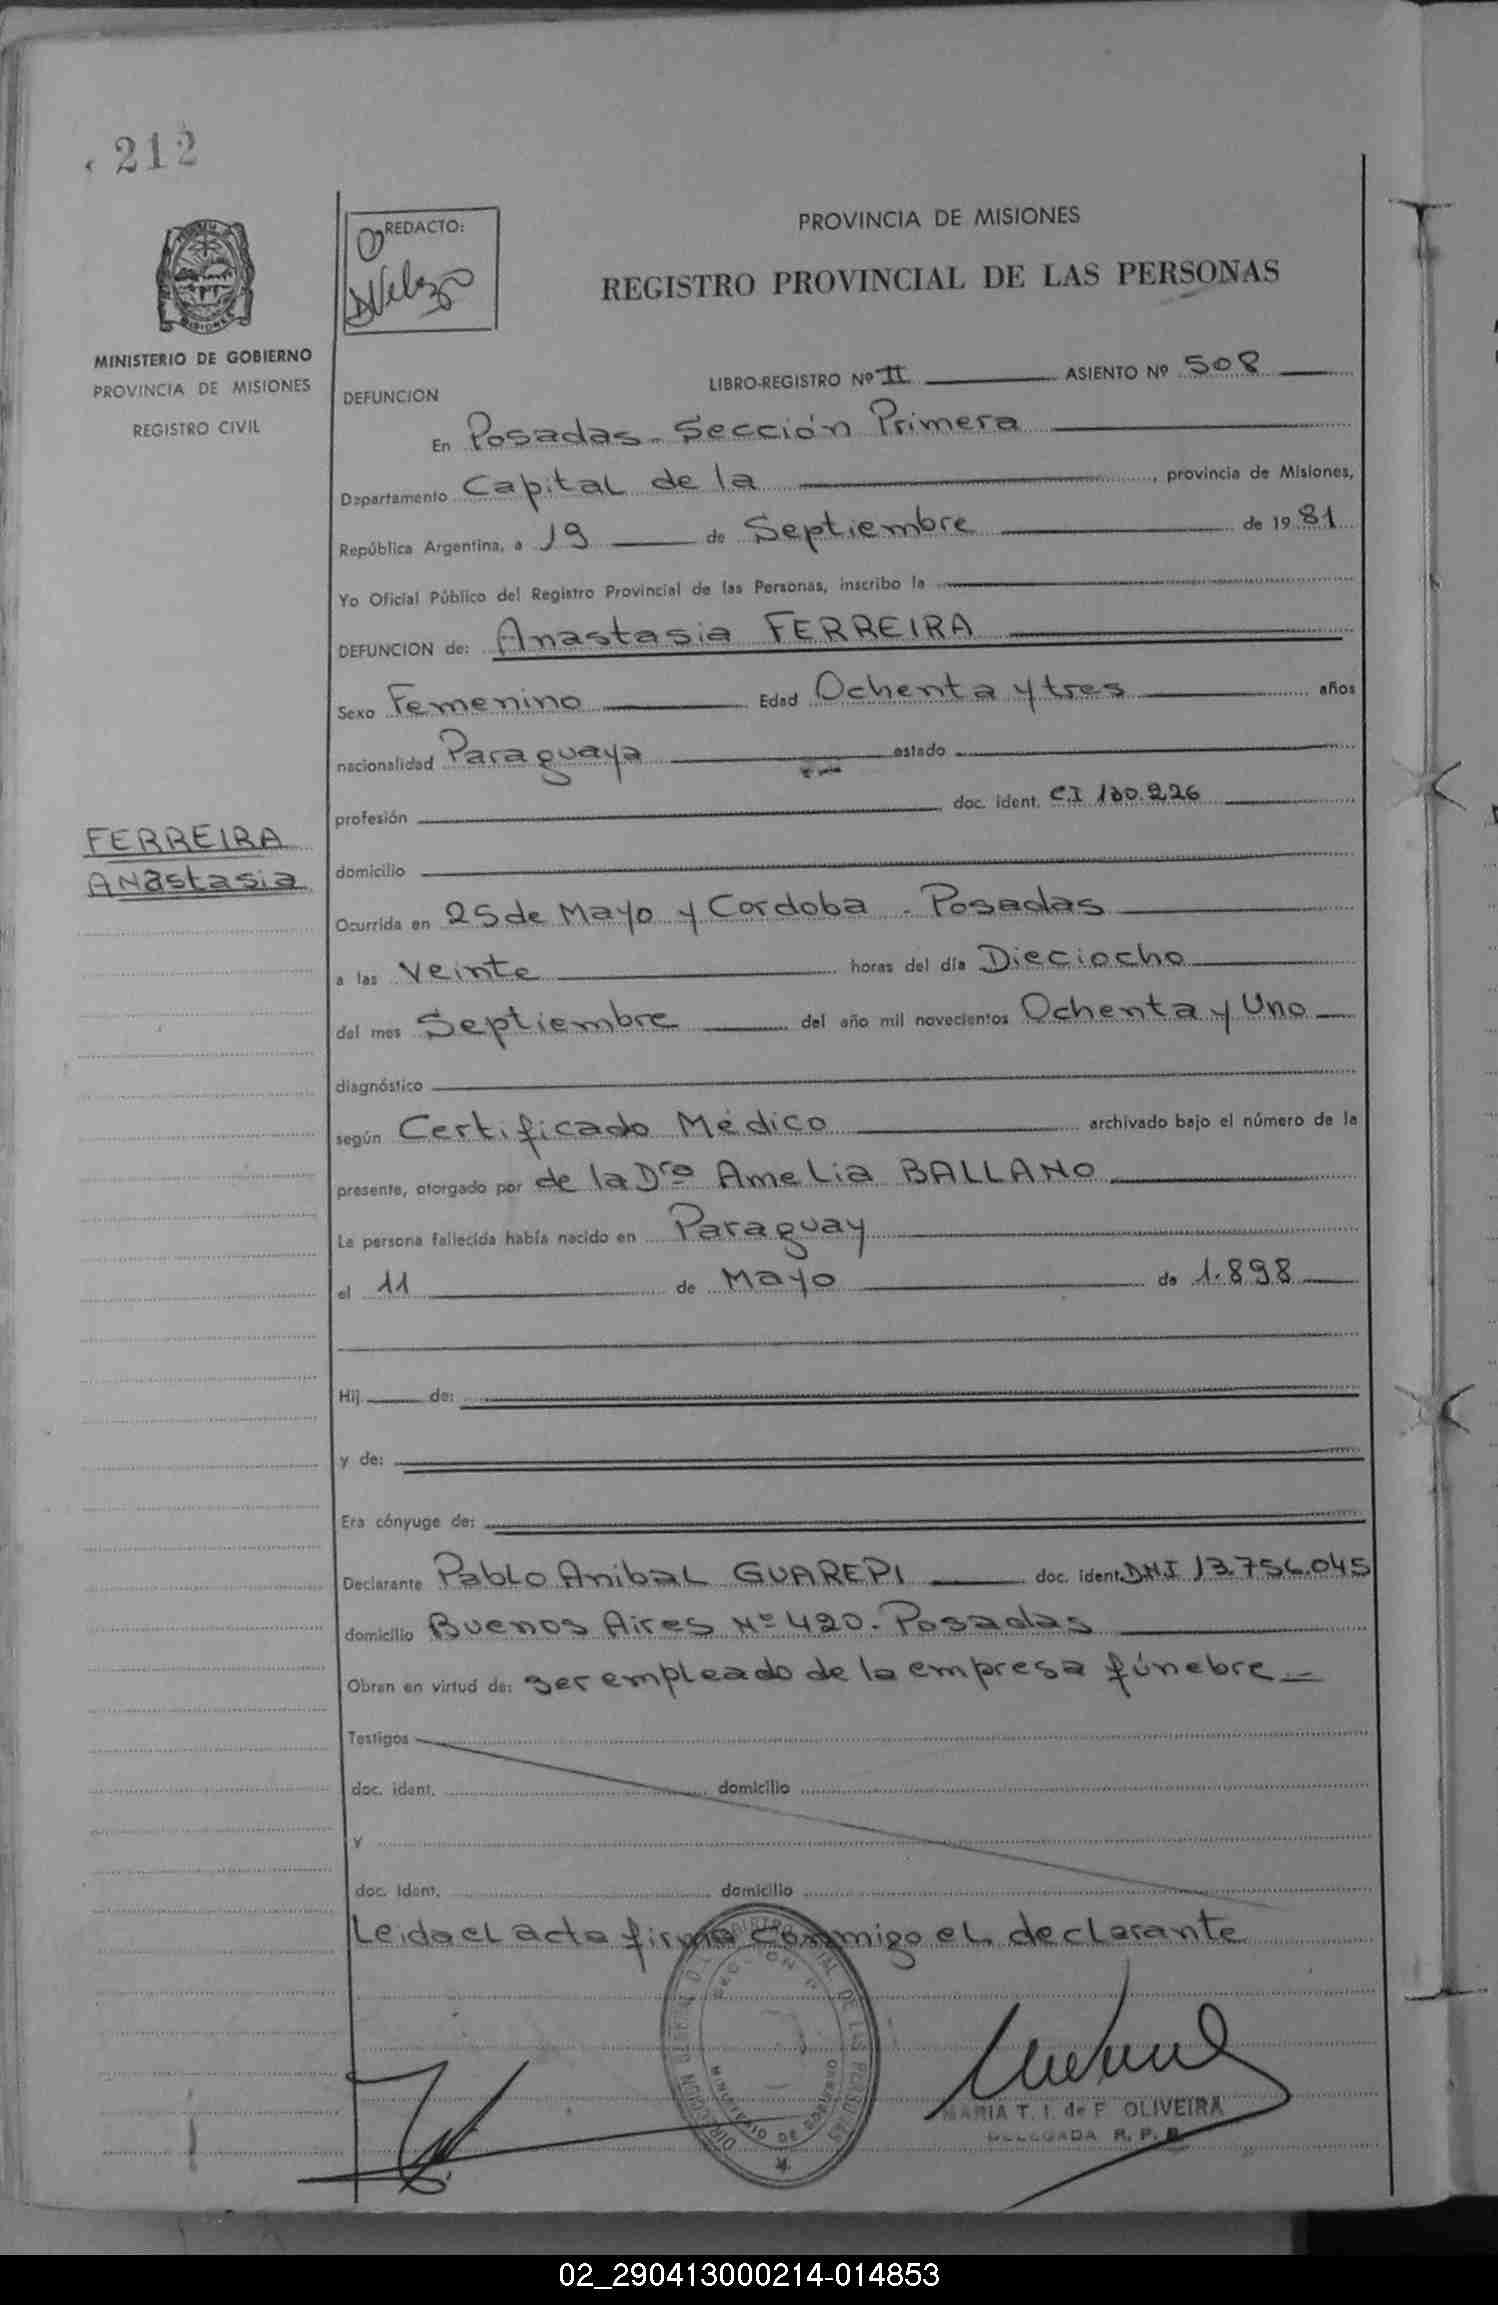 212
PROVINCIA DE MISIONES
REGISTRO PROVINCIAL DE LAS PERSONAS
REDACTO:
MISIONES
MINISTERIO DE GOBIERNO
PROVINCIA DE MISIONES
REGISTRO CIVIL
LIBRO-REGISTRO Nº II ASIENTO Nº 508
DEFUNCION
En Posadas. Sección Primera
Departamento Capital de la , provincia de Misiones,
República Argentina, a 19 de Septiembre de 1981
Yo Oficial Público del Registro Provincial de las Personas, inscribo la
DEFUNCION de: Anastasia FERREIRA
Sexo Femenino Edad Ochenta y tres años
nacionalidad Paraguaya estado
profesión doc. ident. CI 130.226
FERREIRA
Anastasia
domicilio
Ocurrida en 25 de Mayo y Cordoba - Posadas
a las Veinte horas del día Dieciocho
del mes Septiembre del año mil novecientos Ochenta y Uno
diagnóstico
según Certificado Médico archivado bajo el número de la
presente, otorgado por de la Dra Amelia BALLANO
La persona fallecida había nacido en Paraguay
el 11 de Mayo de 1.898
Hij de:
y de:
Era cónyuge de:
Declarante Pablo Anibal GUAREPI doc. ident. DNI 13.756.045
domicilio Buenos Aires Nº 420. Posadas
Obran en virtud de: ser empleado de la empresa fúnebre
Testigos
doc. ident. domicilio
y
doc. ident. domicilio
Leida el acta firma conmigo el declarante
DIRECCION GENERAL DEL REGISTRO PROVINCIAL DE LAS PERSONAS
MINISTERIO DE GOBIERNO
MARIA T. I. de F. OLIVEIRA
DELEGADA R. P. P.
02_290413000214-014853